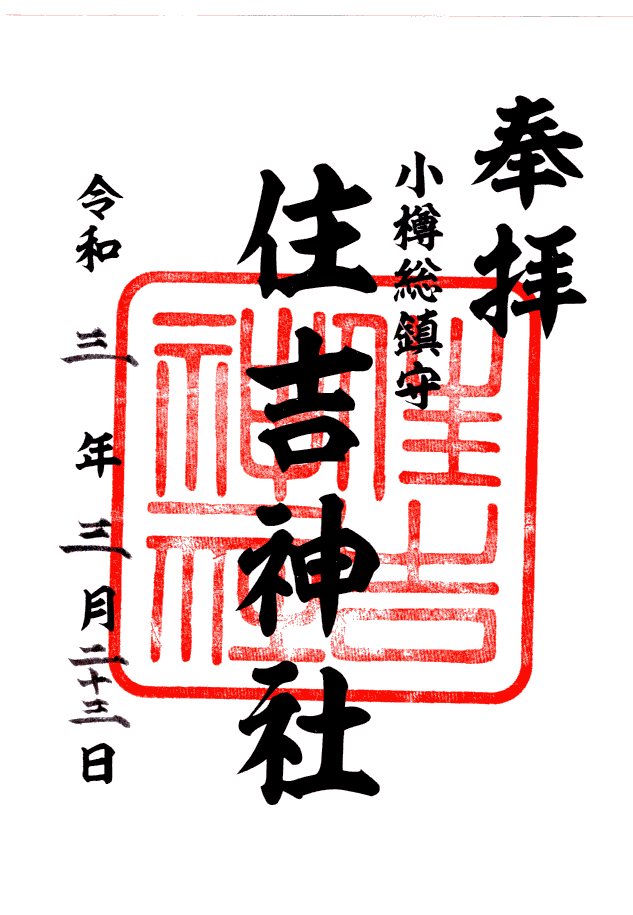 奉拝
小樽総鎮守
住吉神社
住吉神社
令和三年三月二十三日